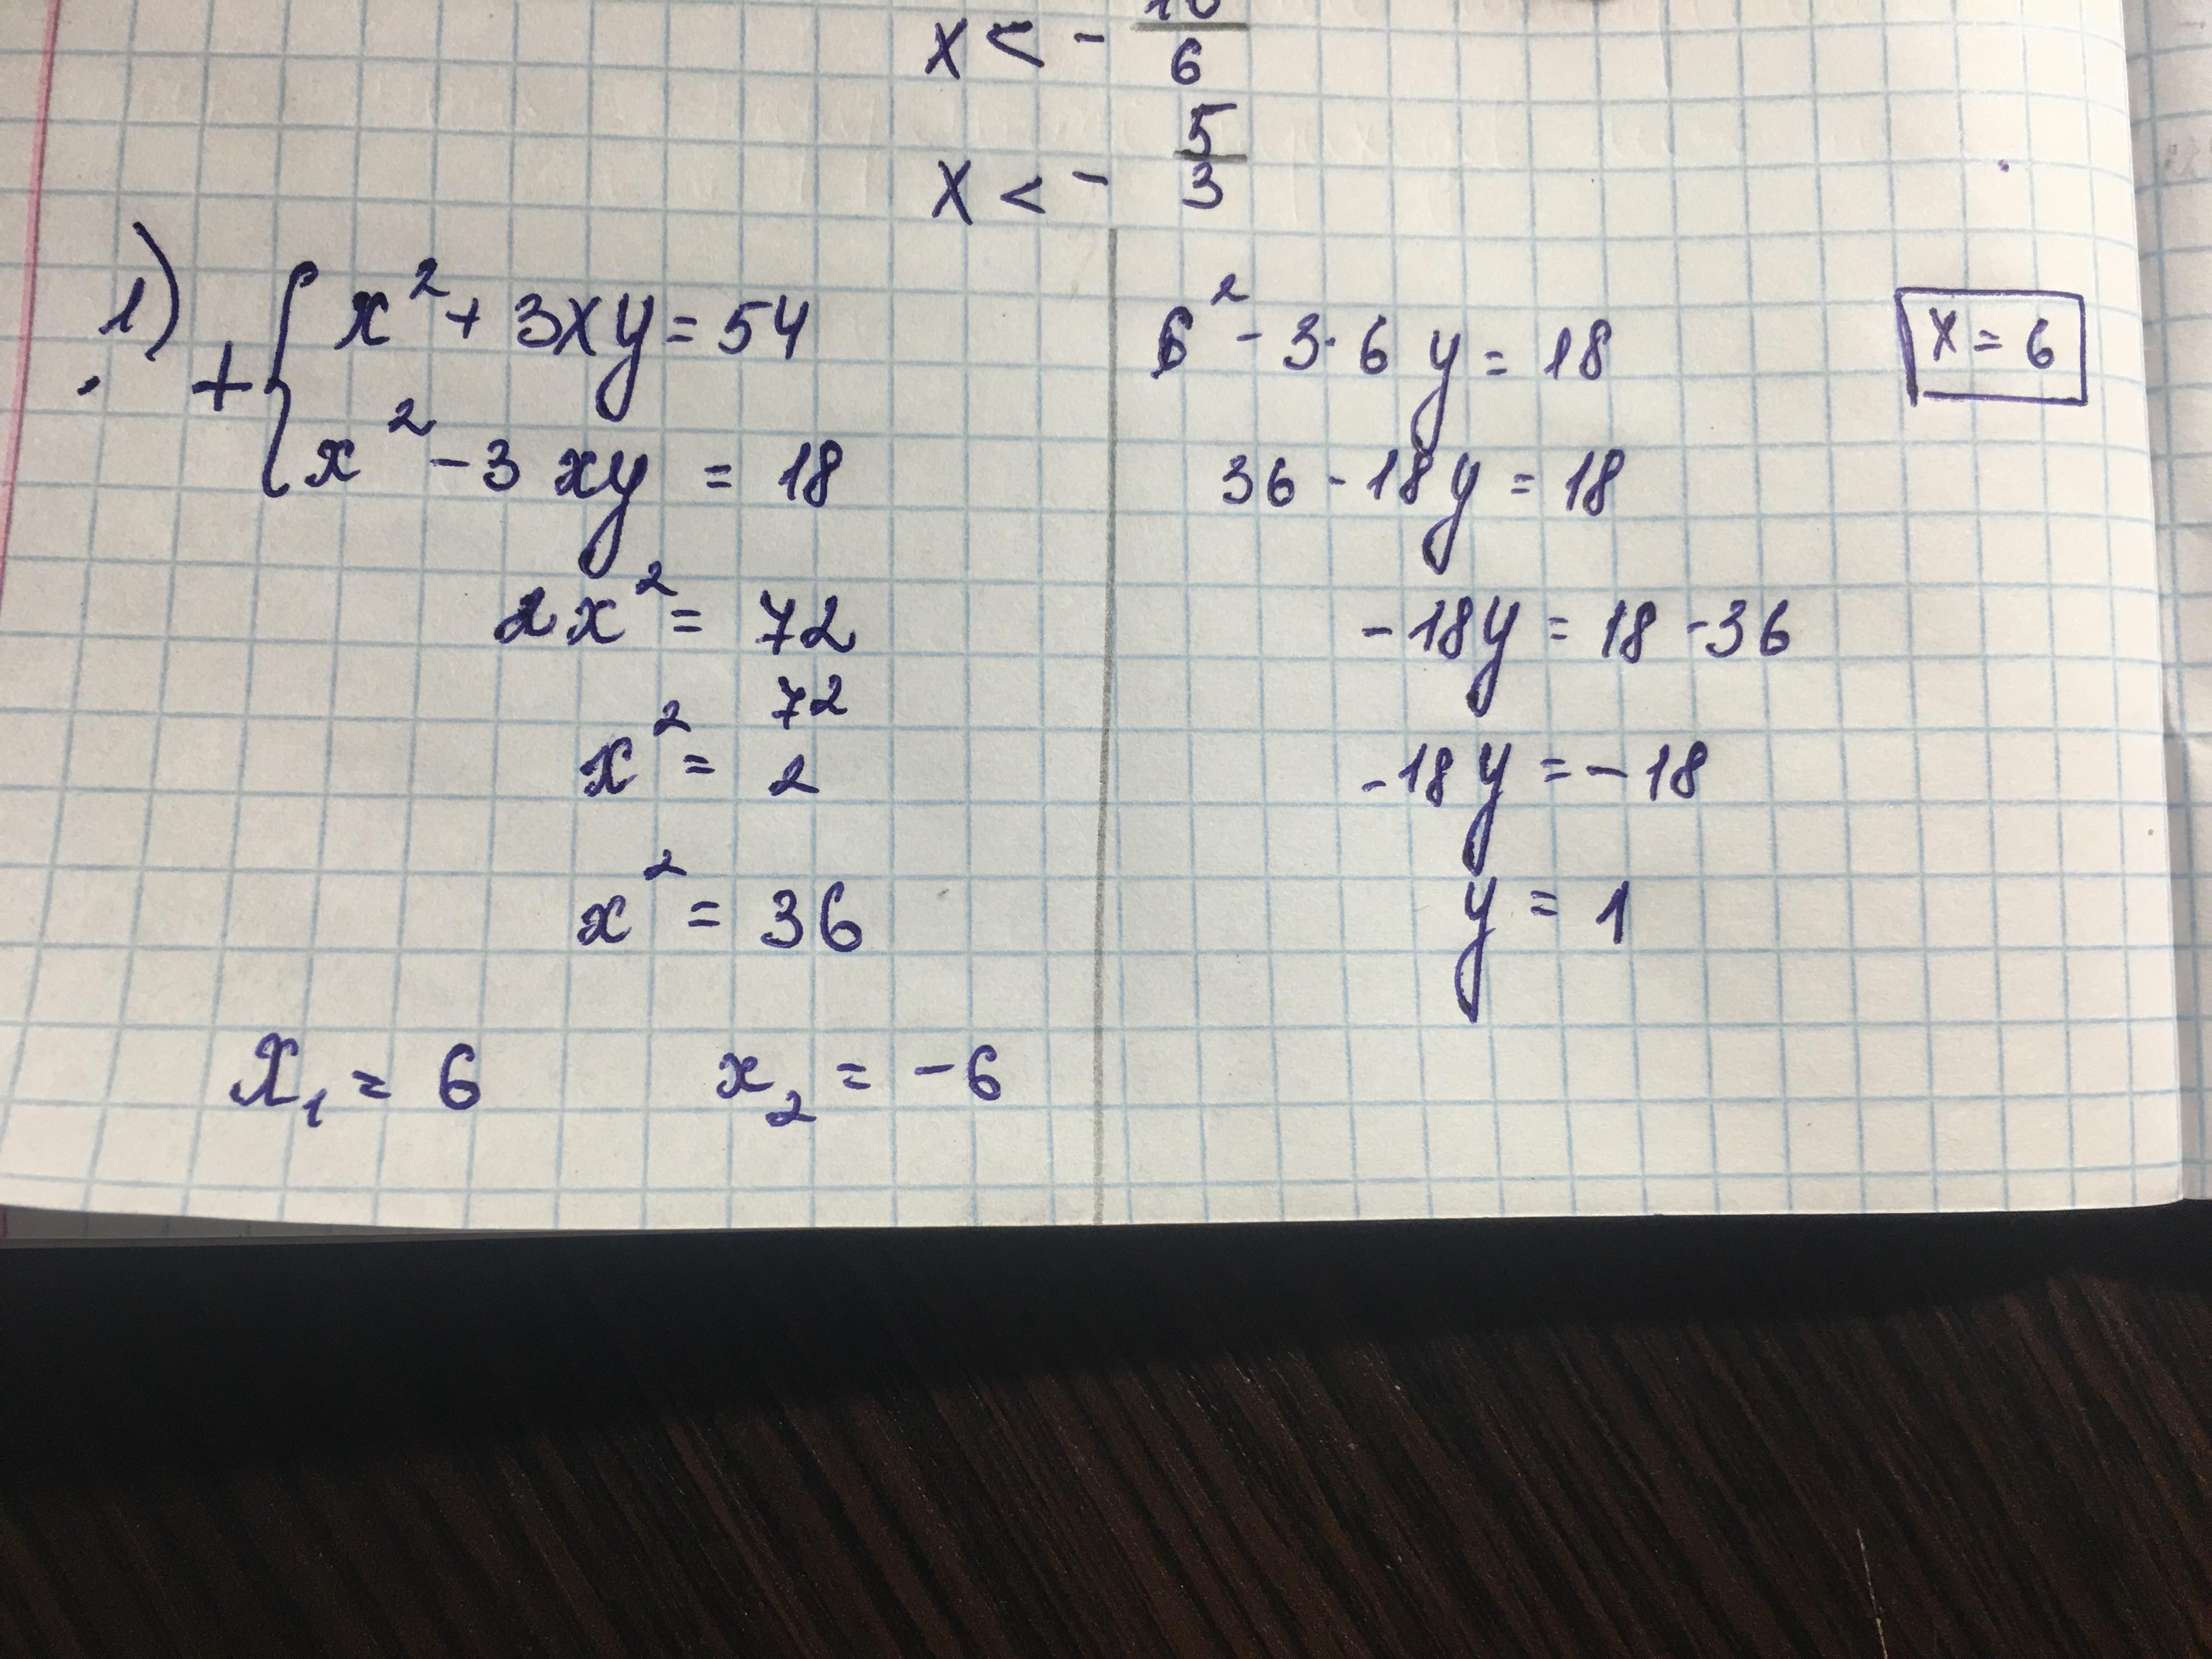 x < - 10/6
x < - 5/3
1) + { x² + 3xy = 54
x² - 3xy = 18
2x² = 72
x² = 72/2
x² = 36
x₁ = 6 x₂ = -6
6² - 3·6y = 18
36 - 18y = 18
-18y = 18 - 36
-18y = -18
y = 1
x = 6